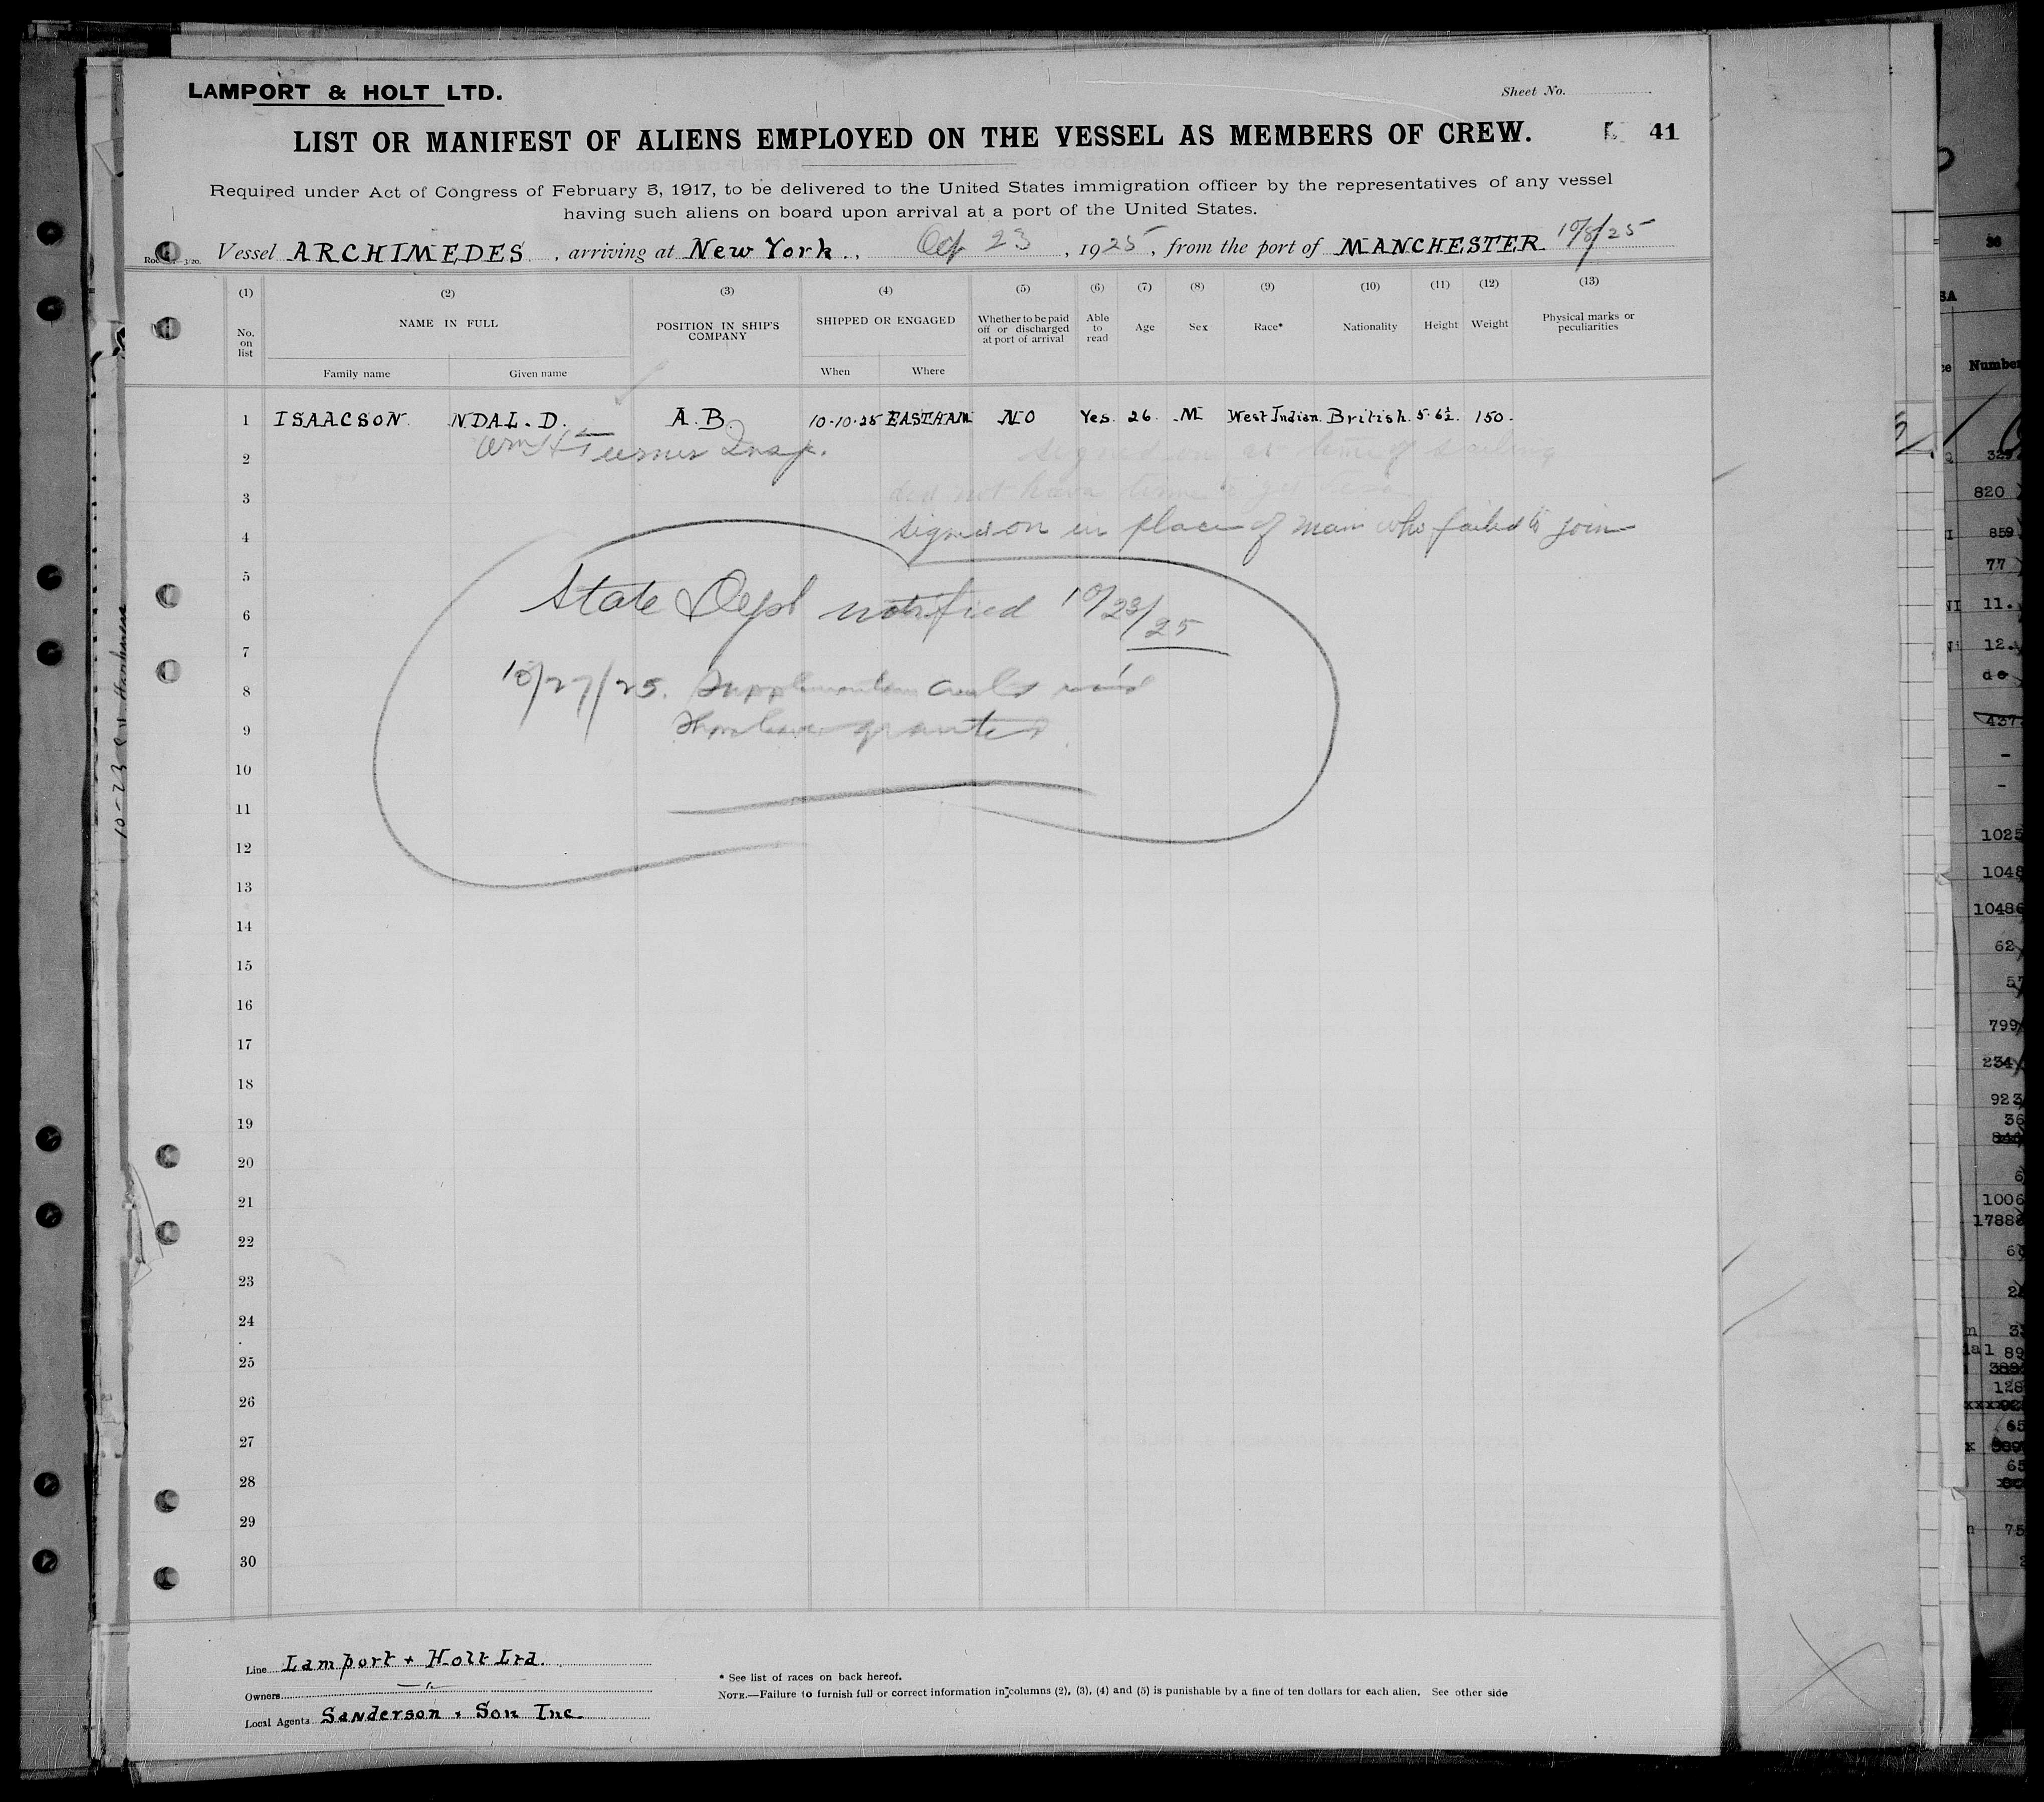 LAMPORT & HOLT LTD.
Sheet No.
LIST OR MANIFEST OF ALIENS EMPLOYED ON THE VESSEL AS MEMBERS OF CREW.
41
Required under Act of Congress of February 5, 1917, to be delivered to the United States immigration officer by the representatives of any vessel
having such aliens on board upon arrival at a port of the United States.
Vessel ARCHIMEDES, arriving at New York, Oct 23, 1925, from the port of MANCHESTER 10/8/25
(1) (2) (3) (4) (5) (6) (7) (8) (9) (10) (11) (12) (13)
No. on list
NAME IN FULL
Family name
Given name
POSITION IN SHIP'S COMPANY
SHIPPED OR ENGAGED
When
Where
Whether to be paid off or discharged at port of arrival
Able to read
Age
Sex
Race*
Nationality
Height
Weight
Physical marks or peculiarities
1 ISAACSON NDAL. D. A.B. 10-10-25 EASTHAM NO Yes. 26. M West Indian British. 5.6½. 150.
Wm H Turner Insp.
2 signed on at time of sailing
3 did not have time to get
4 signed on in place of man who failed to join
5
State Dept notified 10/23/25
6
7
10/27/25. Supplementary
8
granted
9
10
11
12
13
14
15
16
17
18
19
20
21
22
23
24
25
26
27
28
29
30
Line Lamport + Holt Ltd.
Owners
Local Agents Sanderson & Son Inc.
* See list of races on back hereof.
NOTE.—Failure to furnish full or correct information in columns (2), (3), (4) and (5) is punishable by a fine of ten dollars for each alien. See other side
10-23
Number
820
859
77
11.
12.
do
437
1025
1048
10486
62
799
234
923
36
1006
17886
128
65
75